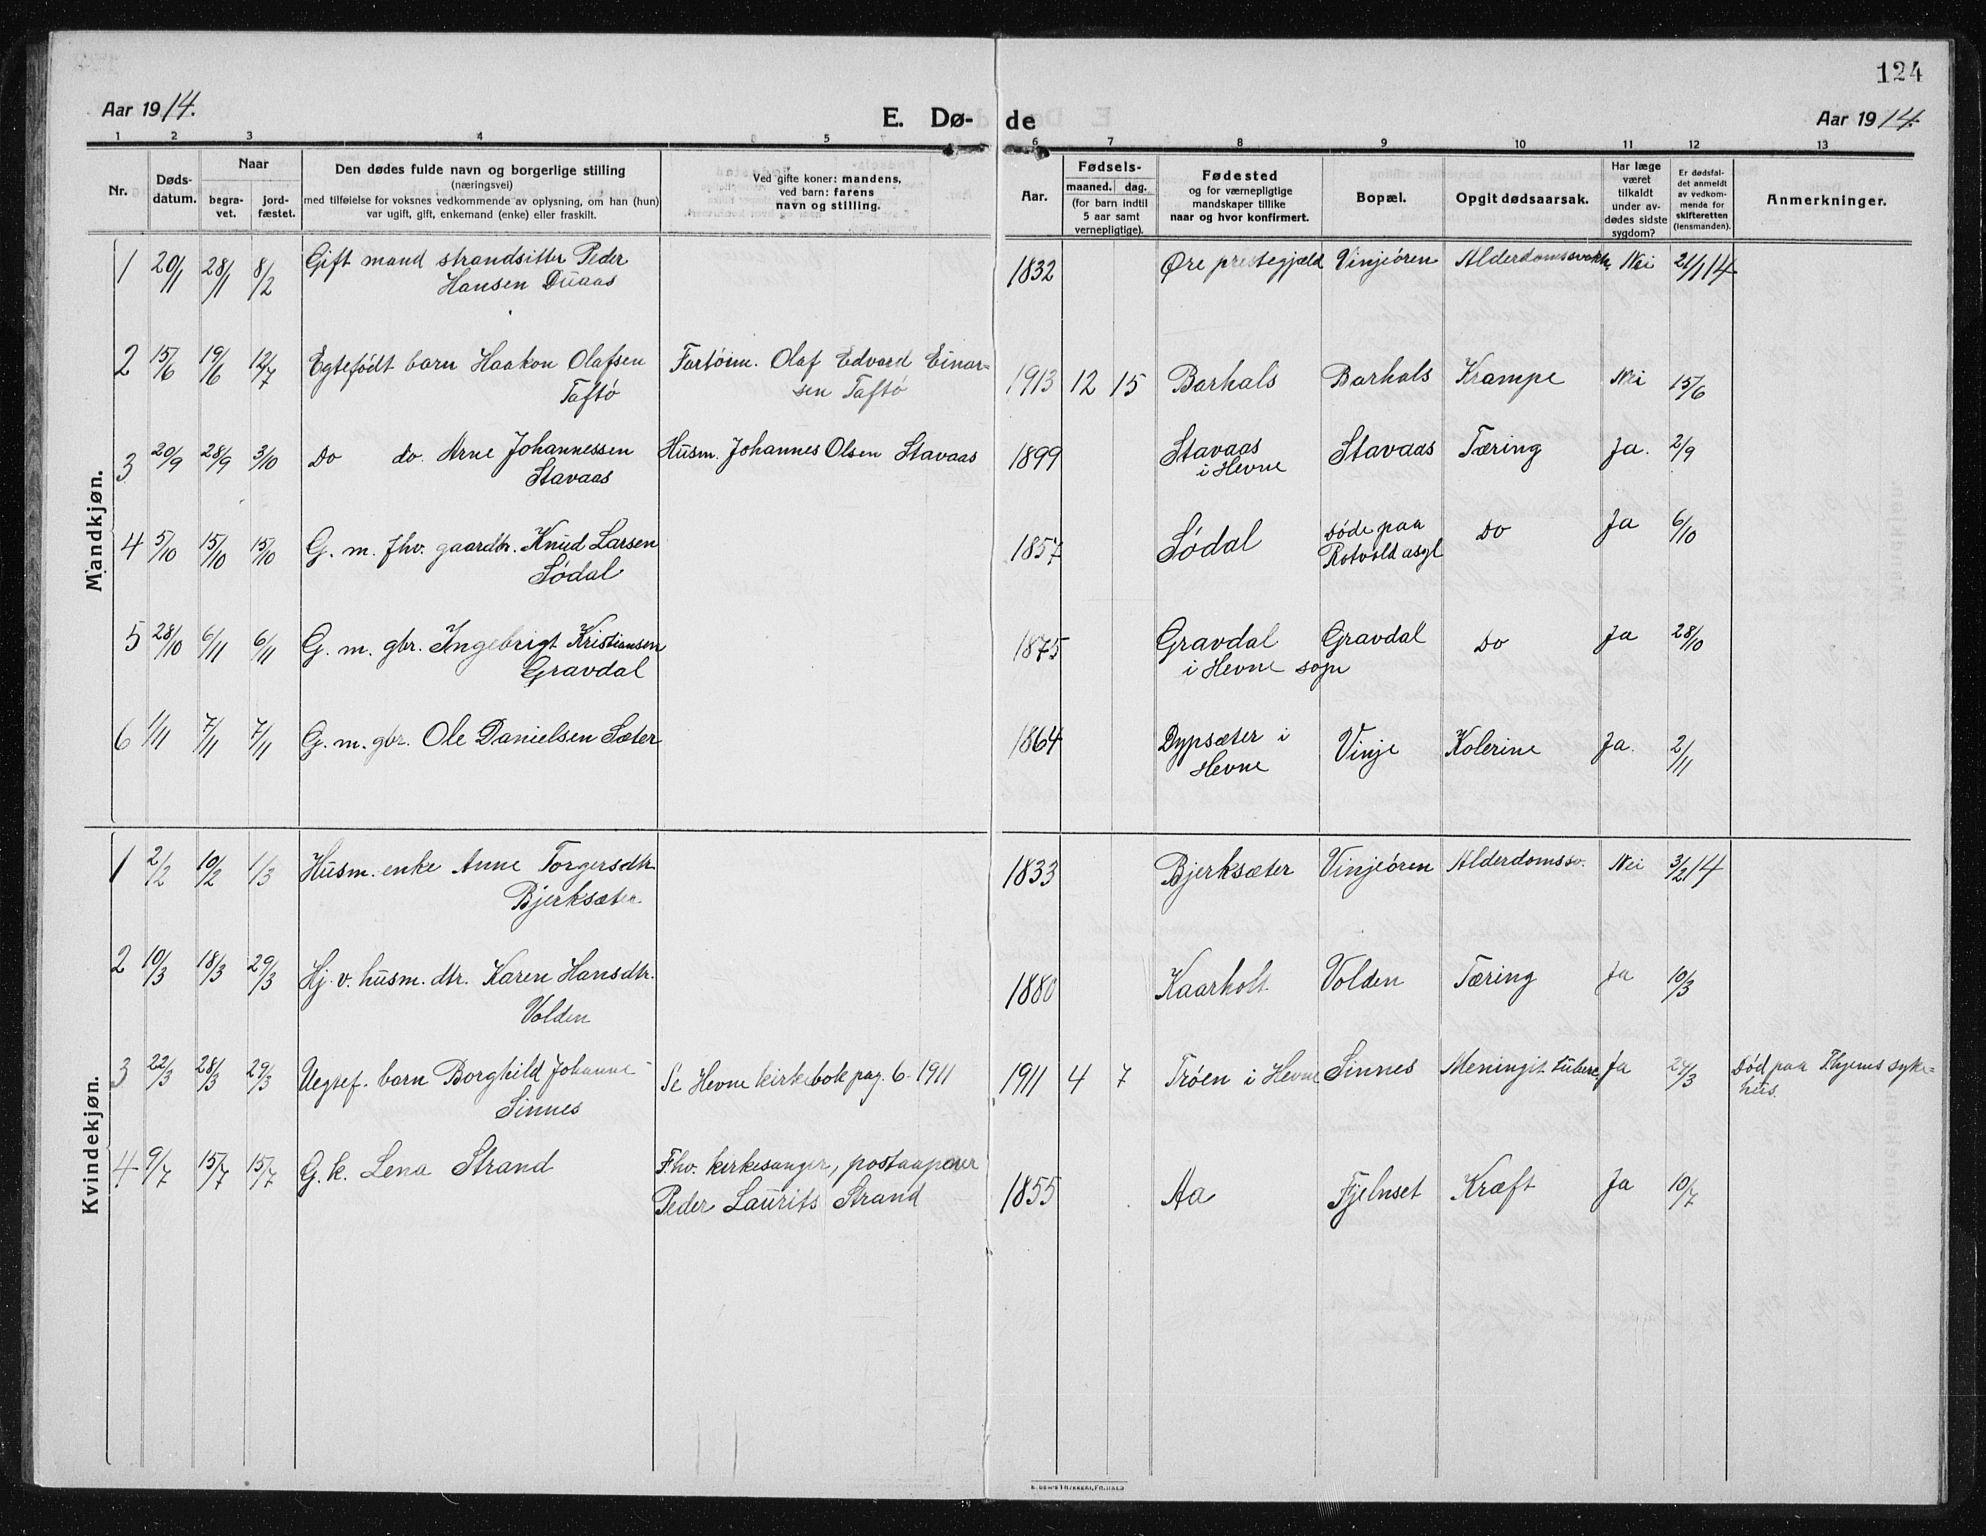 124
Aar 1914.
E. Dø-
de
Aar 1914.
1 2 3 4 5 6 7 8 9 10 11 12 13
Nr.
Døds-
datum.
Naar
begra-
vet.
jord-
fæstet.
Den dødes fulde navn og borgerlige stilling
(næringsvei)
med tilføielse for voksnes vedkommende av oplysning, om han (hun)
var ugift, gift, enkemand (enke) eller fraskilt.
Ved gifte koner: mandens,
ved barn: farens
navn og stilling.
Aar.
Fødsels-
maaned. dag.
(for barn indtil
5 aar samt
vernepligtige).
Fødested
og for værnepligtige
mandskaper tillike
naar og hvor konfirmert.
Bopæl.
Opgit dødsaarsak.
Har læge
været
tilkaldt
under av-
dødes sidste
sygdom?
Er dødsfal-
det anmeldt
av vedkom-
mende for
skifteretten
(lensmanden).
Anmerkninger.
Mandkjøn.
1 20/1 28/1 8/2 Gift mand strandsitter Peder 1832 Øre prestegjæld Vinjeören Alderdomssvakh. Nei 21/1 14
Hansen Duaas
2 15/6 19/6 12/7 Egtefödt barn Haakon Olafsen Fartöim. Olaf Edvard Einar- 1913 12 15 Barhals Barhals Krampe Nei 15/6
Taftö sen Taftö
3 20/9 28/9 3/10 Do do. Arne Johannessen Husm. Johannes Olsen Stavaas 1899 Stavaas Stavaas Tæring Ja. 2/9
Stavaas i Hevne
4 5/10 15/10 15/10 G. m. fhv. gaardbr. Knud Larsen 1857 Södal Döde paa Do Ja 6/10
Södal Rotvold asyl
5 28/10 6/11 6/11 G. m. gbr. Ingebrigt Kristiansen 1875 Gravdal Gravdal Do Ja 28/10
Gravdal i Hevne sogn
6 1/11 7/11 7/11 G. m. gbr. Ole Danielsen Sæter 1864 Dypsæter i Vinje Kolerine Ja. 2/11
Hevne
Kvindekjøn.
1 2/2 10/2 1/3 Husm. enke Anne Torgersdtr. 1833 Bjerksæter Vinjeören Alderdomssv. Nei 3/2 14
Bjerksæter
2 10/3 18/3 29/3 Hj. v. husm. dtr. Karen Hansdtr. 1880 Kaarholt Volden Tæring Ja 10/3
Volden
3 22/3 28/3 29/3 Uegtef. barn Borghild Johanne Se Hevne kirkebok pag. 6 - 1911 1911 4 7 Tröen i Hevne Sinnes Meningit tuberc. Ja 24/3 Död paa Thyems syke-
Sinnes hus.
4 9/7 15/7 15/7 G. k. Lena Strand Fhv. kirkesanger, postaapner 1855 Aa Fjelnset Kræft Ja 10/7
Peder Laurits Strand